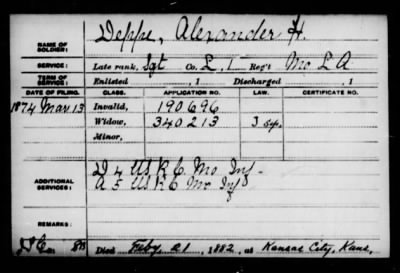 NAME OF SOLDIER: Deppe, Alexander H.
SERVICE: Late rank, Sgt Co. L, 1 Reg't Mo L A
TERM OF SERVICE: Enlisted , 1 Discharged , 1
DATE OF FILING. CLASS. APPLICATION NO. LAW. CERTIFICATE NO.
1874 Mar 13 Invalid, 190696
Widow, 340213
Minor,
ADDITIONAL SERVICES: D 4 US R C Mo Inf
A 5 US R C Mo Inf
REMARKS:
Died Feby. 21, 1882, at Kansas City, Kans,